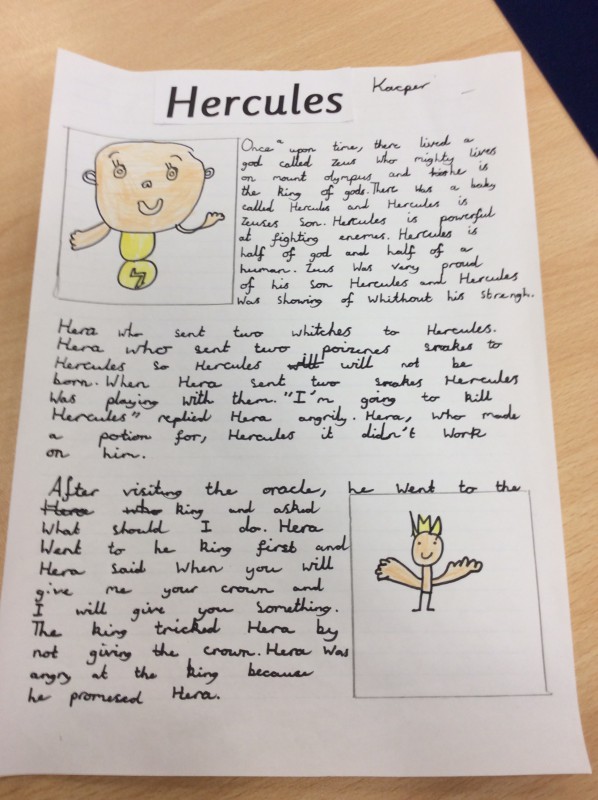 Hercules
Kacper
Once a upon time, there lived a
god called Zeus who mighty lives
on mount olympus and he is
the king of gods. There was a baby
called Hercules and Hercules is
Zeuses Son. Hercules is powerful
at fighting enemies. Hercules is
half of god and half of a
human. Zeus was very proud
of his son Hercules and Hercules
was showing of whithout his strengh.
Hera who sent two whitches to Hercules.
Hera who sent two poizenes snakes to
Hercules so Hercules will will not be
born. When Hera sent two snakes Hercules
was playing with them. "I'm going to kill
Hercules" replied Hera angrily. Hera, who made
a potion for, Hercules it didn't work
on him.
After visiting the oracle, he went to the
Hera who king and asked
What should I do. Hera
Went to he king first and
Hera said When you will
give me your crown and
I will give you something.
The king tricked Hera by
not giving the crown. Hera was
angry at the king because
he promesed Hera.